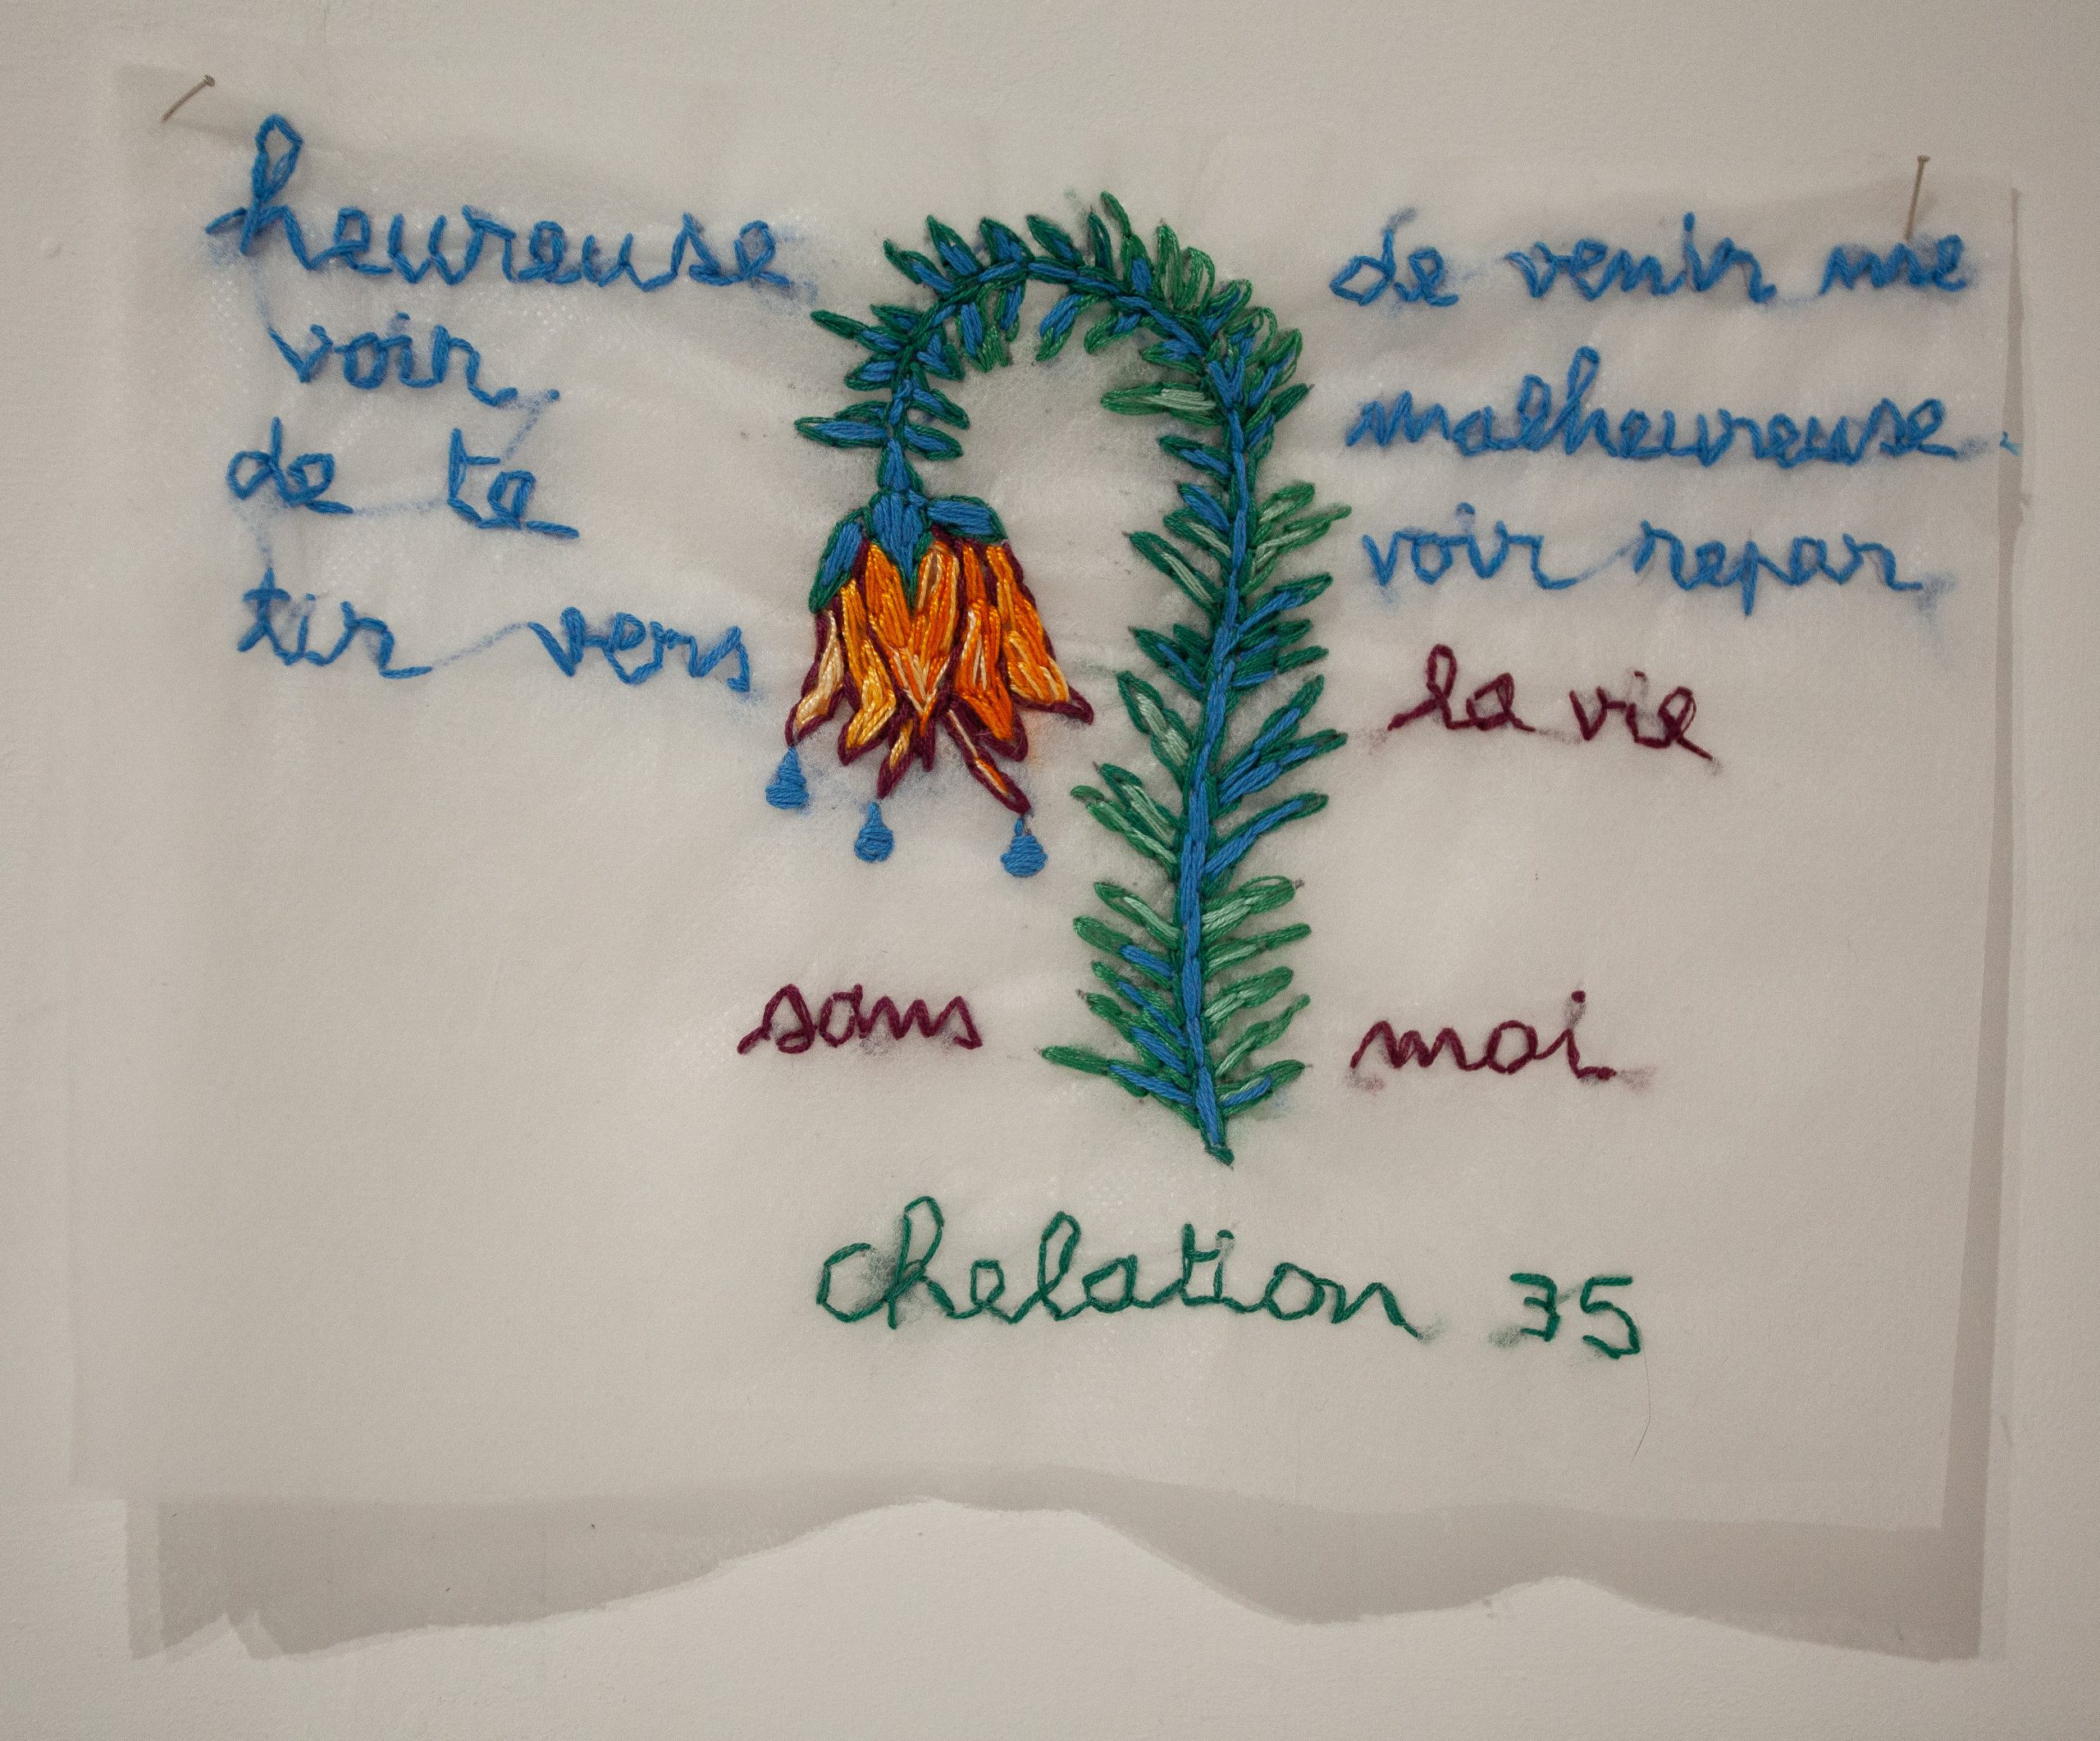 heureuse de venir me
voir malheureuse
de te voir repar
tir vers la vie
sans moi
chelation 35